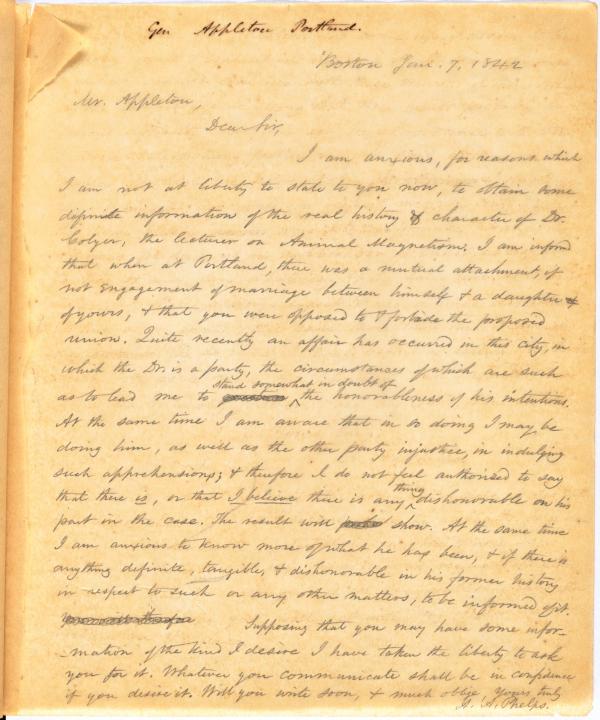 Gen Appleton Portland.
Boston Jan. 7, 1842
Mr. Appleton,
Dear Sir,
I am anxious, for reasons which
I am not at liberty to state to you now, to obtain some
definite information of the real history & character of Dr.
Colyer, the lecturer on Animal Magnetism. I am inform
that when at Portland, there was a mutual attachment, if
not engagement of marriage between himself & a daughter
of yours, & that you were opposed to & forbade the proposed
union. Quite recently an affair has occurred in this city, in
which the Dr. is a party, the circumstances of which are such
as to lead me to stand somewhat in doubt of the honorableness of his intentions.
At the same time I am aware that in so doing I may be
doing him, as well as the other party injustice, in indulging
such apprehensions; & therefore I do not feel authorised to say
that there is, or that I believe there is any thing dishonorable on his
part in the case. The result will show. At the same time
I am anxious to know more of what he has been, & if there is
anything definite, tangible, & dishonorable in his former history
in respect to such or any other matters, to be informed of it.
Supposing that you may have some infor-
mation of the kind I desire I have taken the liberty to ask
you for it. Whatever you communicate shall be in confidence
if you desire it. Will you write soon, & much oblige, yours truly
A. A. Phelps.